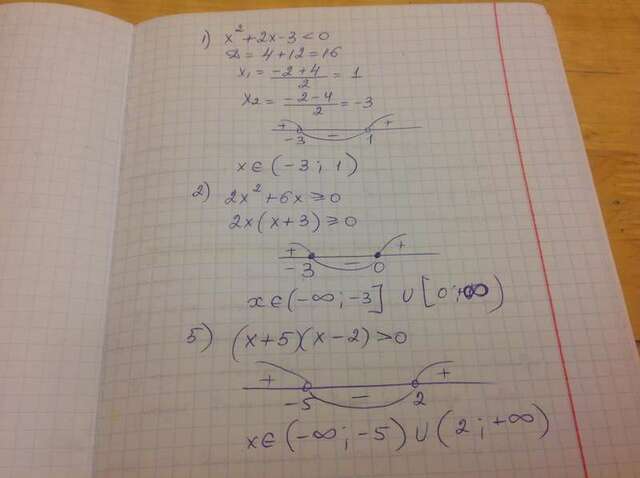 1) x²+2x-3<0
D=4+12=16
x₁=(-2+4)/2=1
x₂=(-2-4)/2=-3
+ - +
-3 1
x∈(-3; 1)
2) 2x²+6x≥0
2x(x+3)≥0
+ - +
-3 0
x∈(-∞;-3] ∪ [0;+∞)
5) (x+5)(x-2)>0
+ - +
-5 2
x∈(-∞;-5)∪(2;+∞)